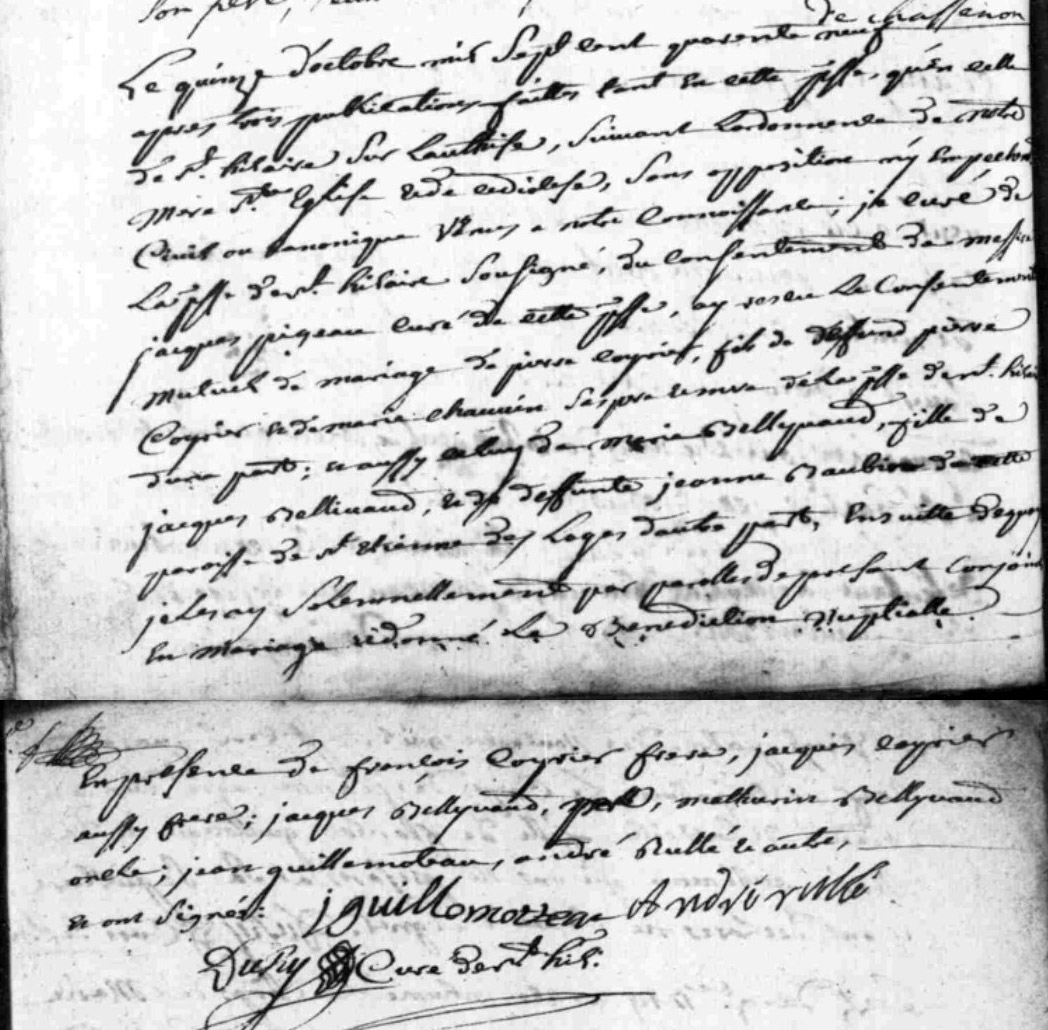 son pere,
de chassenon
Le quinze d'octobre mil sept cent quarente neuf
apres trois publications faittes tant en cette psse, qu'en celle
de st. hilaire sur l'authise, suivant l'ordonnence de notre
mere ste Eglise et de ce diocese, sans opposition ny empechem
Civil ou canonique venus a notre connoissance; je curé de
la psse de st. hilaire sousigné, du consentement de messire
jacques pigeau curé de cette psse, ay receu le consentement
mutuel de mariage de pierre coyrier, fils de deffund pierre
Coyrier et de marie chauvin ses pre et mre de la psse de st. hilaire
d'une part; et aussy celuy de marie Bellyvaud, fille de
jacques Bellivaud, et de deffunte jeanne Baubier de cette
paroisse de st etienne des Loges d'autre part, Ensuitte dequoy
je les ay solennellement par parolles de present conjoint
En mariage et donné La Benediction Nuptialle.
En presence de francois Coyrier frere, jacques coyrier
aussy frere; jacques Bellyvaud, pere, mathurin Bellyvaud
oncle, jean guillemoteau, andré Bullé et autre,
et ont signés: j guillemoteau André
Cure de st hil.